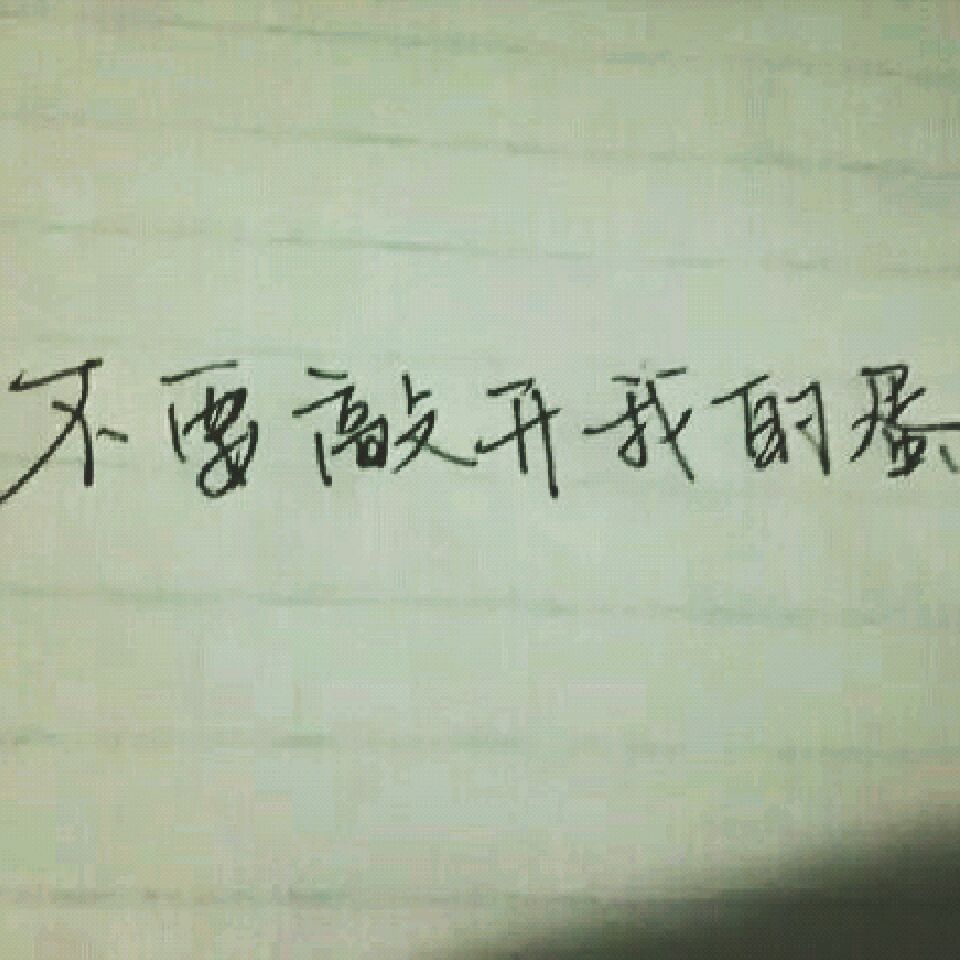 不要敲开我的蛋